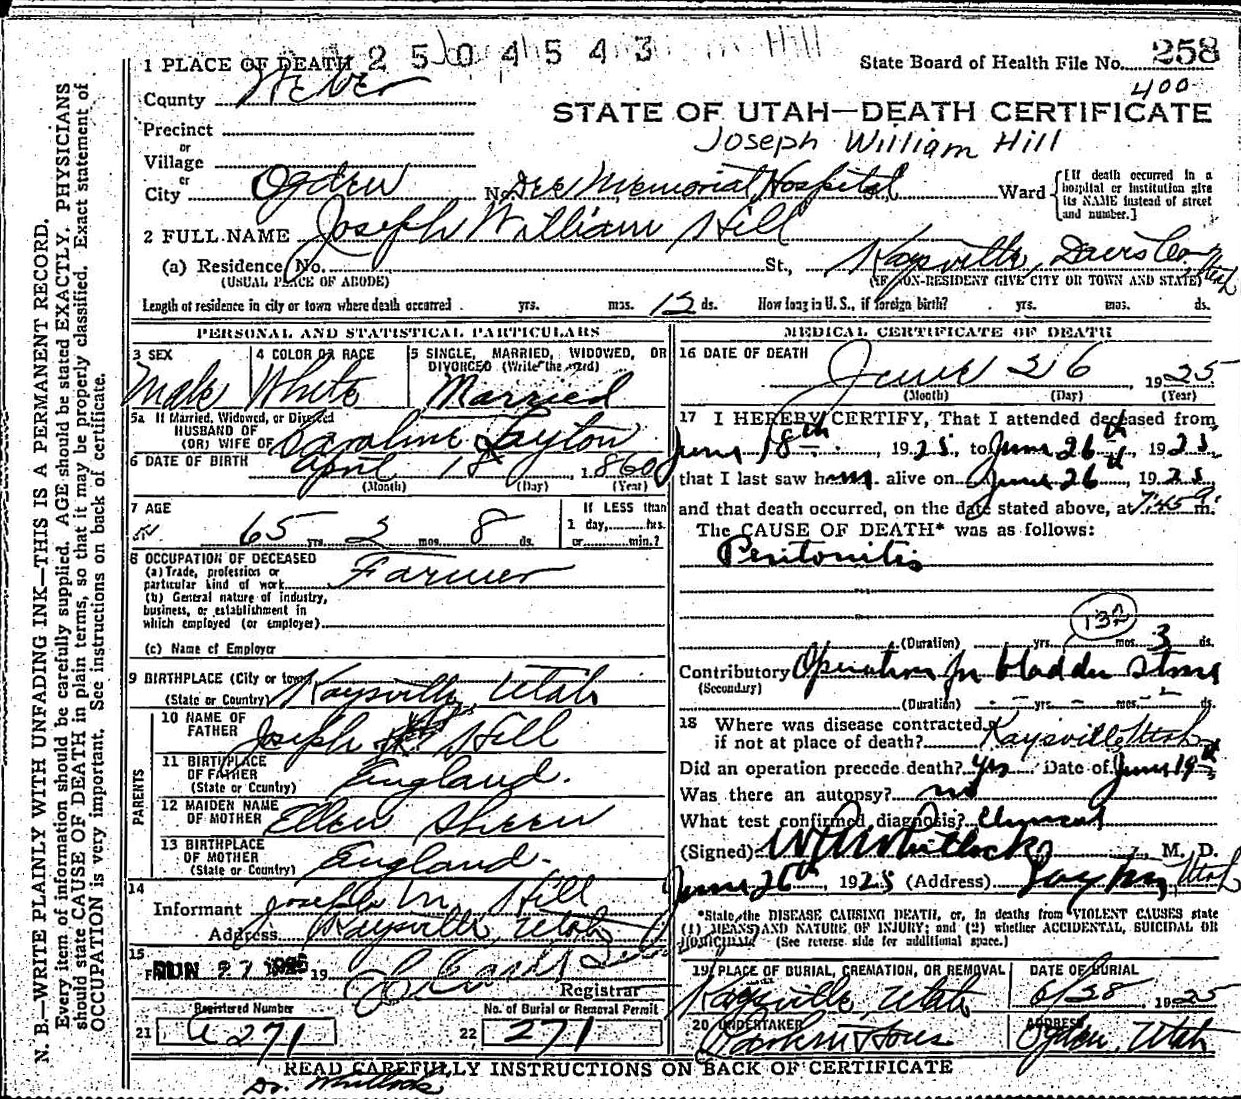 2504543
Hill
State Board of Health File No. 258
400
1 PLACE OF DEATH
County Weber
STATE OF UTAH—DEATH CERTIFICATE
Joseph William Hill
Precinct
or
Village
or
City Ogden No. Dee Memorial Hospital St., Ward
[If death occurred in a hospital or institution give its NAME instead of street and number.]
2 FULL NAME Joseph William Hill
(a) Residence, No. St., Kaysville, Davis Co. Utah
(USUAL PLACE OF ABODE) (IF NON-RESIDENT GIVE CITY OR TOWN AND STATE)
Length of residence in city or town where death occurred yrs. mos. 12 ds. How long in U. S., if foreign birth? yrs. mos. ds.
PERSONAL AND STATISTICAL PARTICULARS
3 SEX Male
4 COLOR OR RACE White
5 SINGLE, MARRIED, WIDOWED, OR DIVORCED (Write the word) Married
5a If Married, Widowed, or Divorced
HUSBAND OF
(OR) WIFE OF Caroline Layton
6 DATE OF BIRTH April 18, 1860
(Month) (Day) (Year)
7 AGE 65 yrs. 2 mos. 8 ds.
If LESS than 1 day, hrs. or min.?
8 OCCUPATION OF DECEASED
(a) Trade, profession or particular kind of work Farmer
(b) General nature of industry, business, or establishment in which employed (or employer)
(c) Name of Employer
9 BIRTHPLACE (City or town) Kaysville, Utah
(State or Country)
PARENTS
10 NAME OF FATHER Joseph Hill
11 BIRTHPLACE OF FATHER England.
(State or Country)
12 MAIDEN NAME OF MOTHER Ellen Sheen
13 BIRTHPLACE OF MOTHER England.
(State or Country)
14
Informant Joseph M. Hill
Address Kaysville, Utah
15
JUN 27 1925 19
Registrar
Registered Number
21 a 271
No. of Burial or Removal Permit
22 271
MEDICAL CERTIFICATE OF DEATH
16 DATE OF DEATH
June 26, 1925
(Month) (Day) (Year)
17 I HEREBY CERTIFY, That I attended deceased from
June 18th, 1925, to June 26th, 1925,
that I last saw him alive on June 26, 1925,
and that death occurred, on the date stated above, at 7:45 m.
The CAUSE OF DEATH* was as follows:
Peritonitis
132
(Duration) yrs. mos. 3 ds.
Contributory Operation for bladder stone
(Secondary)
(Duration) yrs. mos. ds.
18 Where was disease contracted, if not at place of death? Kaysville Utah
Did an operation precede death? yes Date of June 19th
Was there an autopsy? no
What test confirmed diagnosis? Clinical
(Signed) Whitlock, M. D.
June 26th, 1925 (Address) Layton, Utah
*State the DISEASE CAUSING DEATH, or, in deaths from VIOLENT CAUSES state (1) MEANS AND NATURE OF INJURY; and (2) whether ACCIDENTAL, SUICIDAL OR HOMICIDAL. (See reverse side for additional space.)
19 PLACE OF BURIAL, CREMATION, OR REMOVAL
Kaysville, Utah
DATE OF BURIAL
6/28, 1925
20 UNDERTAKER
Larkin & Sons
ADDRESS
Ogden, Utah
READ CAREFULLY INSTRUCTIONS ON BACK OF CERTIFICATE
Dr. Whitlock
N. B.—WRITE PLAINLY WITH UNFADING INK—THIS IS A PERMANENT RECORD.
Every item of information should be carefully supplied. AGE should be stated EXACTLY. PHYSICIANS
should state CAUSE OF DEATH in plain terms, so that it may be properly classified. Exact statement of
OCCUPATION is very important. See instructions on back of certificate.